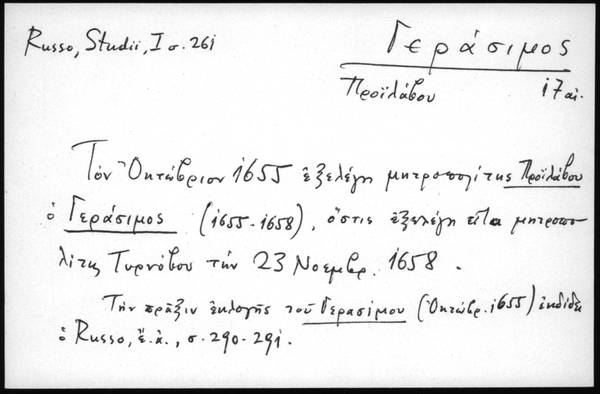 Russo, Studii, I σ. 261
Γεράσιμος
Προϊλάβου 17 αἰ.
Τὸν Ὀκτώβριον 1655 ἐξελέγη μητροπολίτης Προϊλάβου
ὁ Γεράσιμος (1655-1658), ὅστις ἐξελέγη εἶτα μητροπο-
λίτης Τυρνόβου τὴν 23 Νοεμβρ. 1658.
Τὴν πρᾶξιν ἐκλογῆς τοῦ Γερασίμου (Ὀκτώβρ. 1655) ἐκδίδει
ὁ Russo, ἔ.ἀ., σ. 290-291.